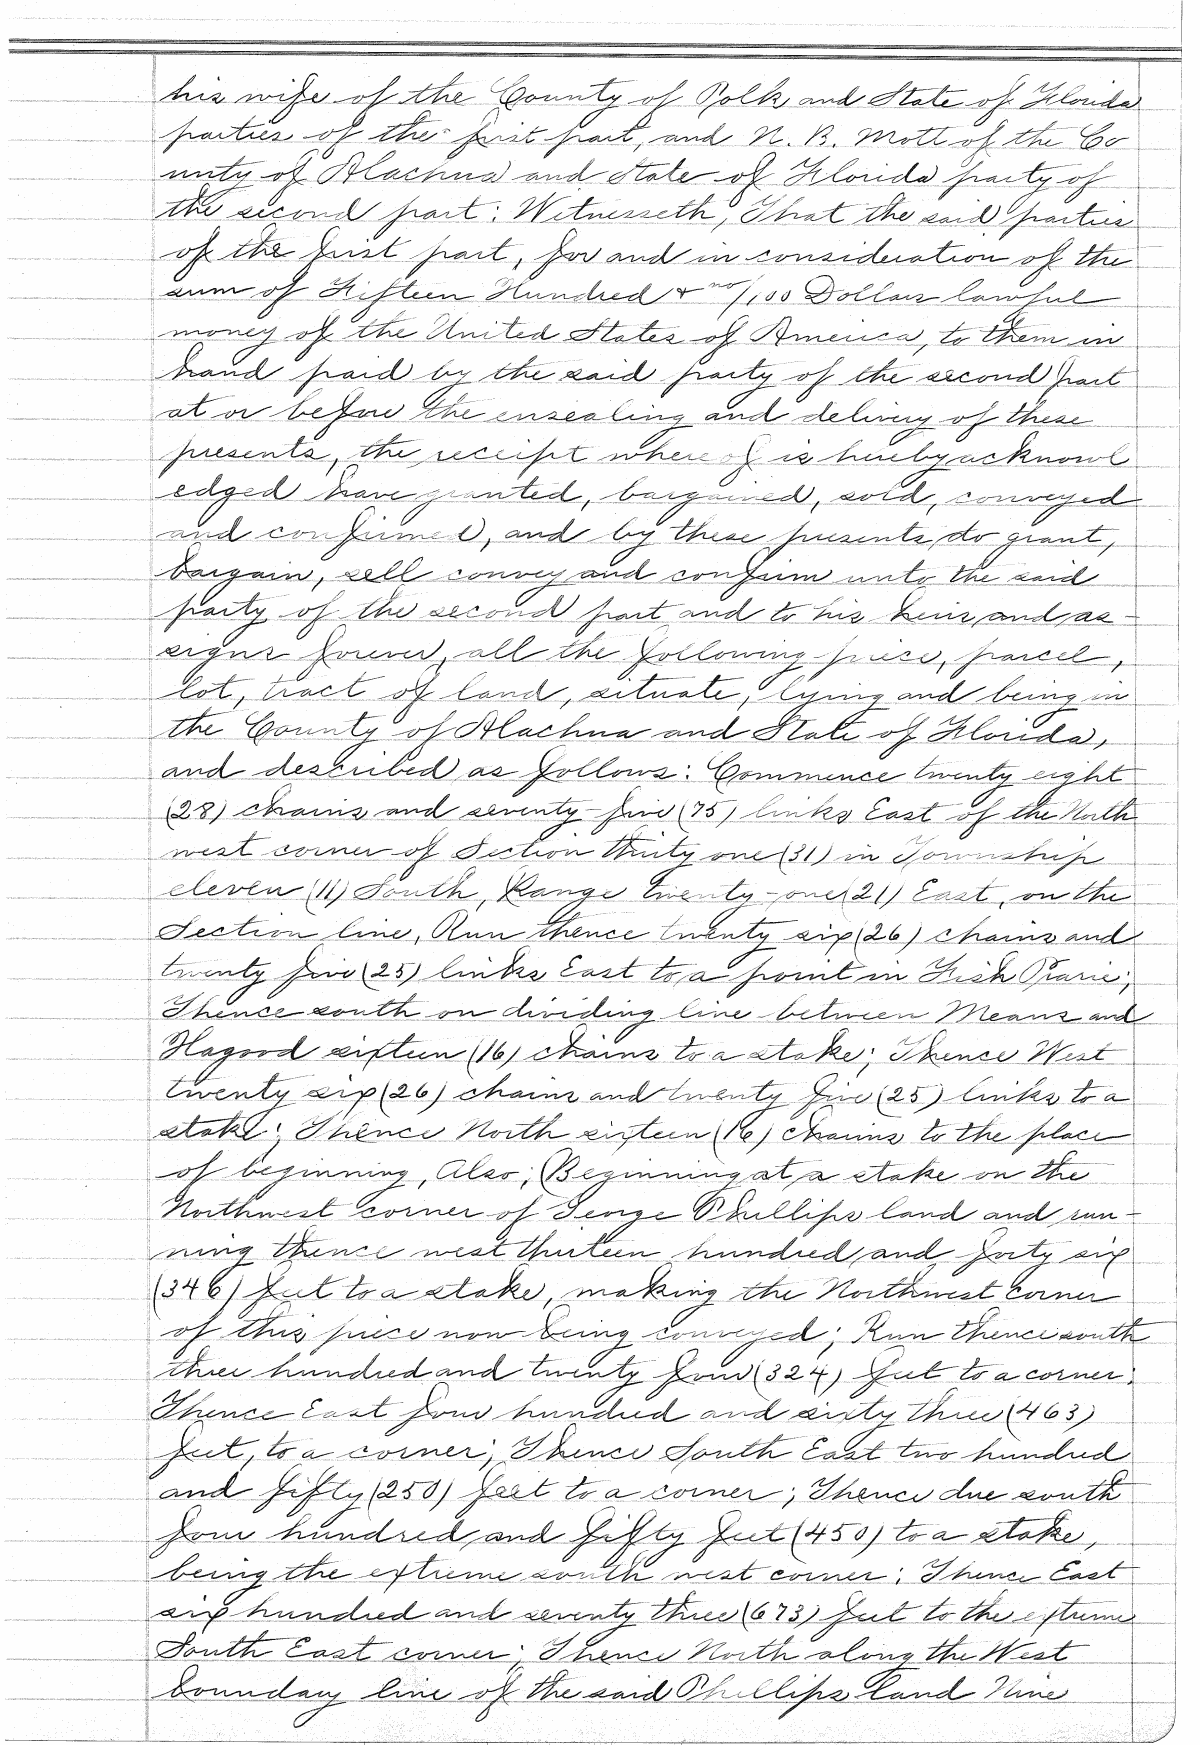 his wife of the County of Polk and State of Florida
parties of the first part, and N. B. Mott of the Co
unty of Alachua and State of Florida party of
the second part: Witnesseth, That the said parties
of the first part, for and in consideration of the
sum of Fifteen Hundred & no/100 Dollars lawful
money of the United States of America, to them in
hand paid by the said party of the second part
at or before the ensealing and delivery of these
presents, the receipt where of is hereby acknowl
edged have granted, bargained, sold, conveyed
and confirmed, and by these presents do grant,
bargain, sell convey and confirm unto the said
party of the second part and to his heirs and as-
signs forever, all the following piece, parcel,
lot, tract of land, situate, lying and being in
the County of Alachua and State of Florida,
and described as follows: Commence twenty eight
(28) chains and seventy-five (75) links East of the North
west corner of Section thirty one (31) in Township
eleven (11) South, Range twenty-one (21) East, on the
Section line, Run thence twenty six (26) chains and
twenty five (25) links East to a point in Fish Prarie;
Thence south on dividing line between Means and
Hagood sixteen (16) chains to a stake; Thence West
twenty six (26) chains and twenty five (25) links to a
stake; Thence North sixteen (16) chains to the place
of beginning, Also; Beginning at a stake on the
Northwest corner of George Phillips land and run-
ning thence west thirteen hundred and forty six
(346) feet to a stake, making the Northwest corner
of this piece now being conveyed; Run thence south
three hundred and twenty four (324) feet to a corner;
Thence East four hundred and sixty three (463)
feet, to a corner; Thence South East two hundred
and fifty (250) feet to a corner; Thence due south
four hundred and fifty feet (450) to a stake,
being the extreme south west corner; Thence East
six hundred and seventy three (673) feet to the extreme
South East corner; Thence North along the West
boundary line of the said Phillips land Nine